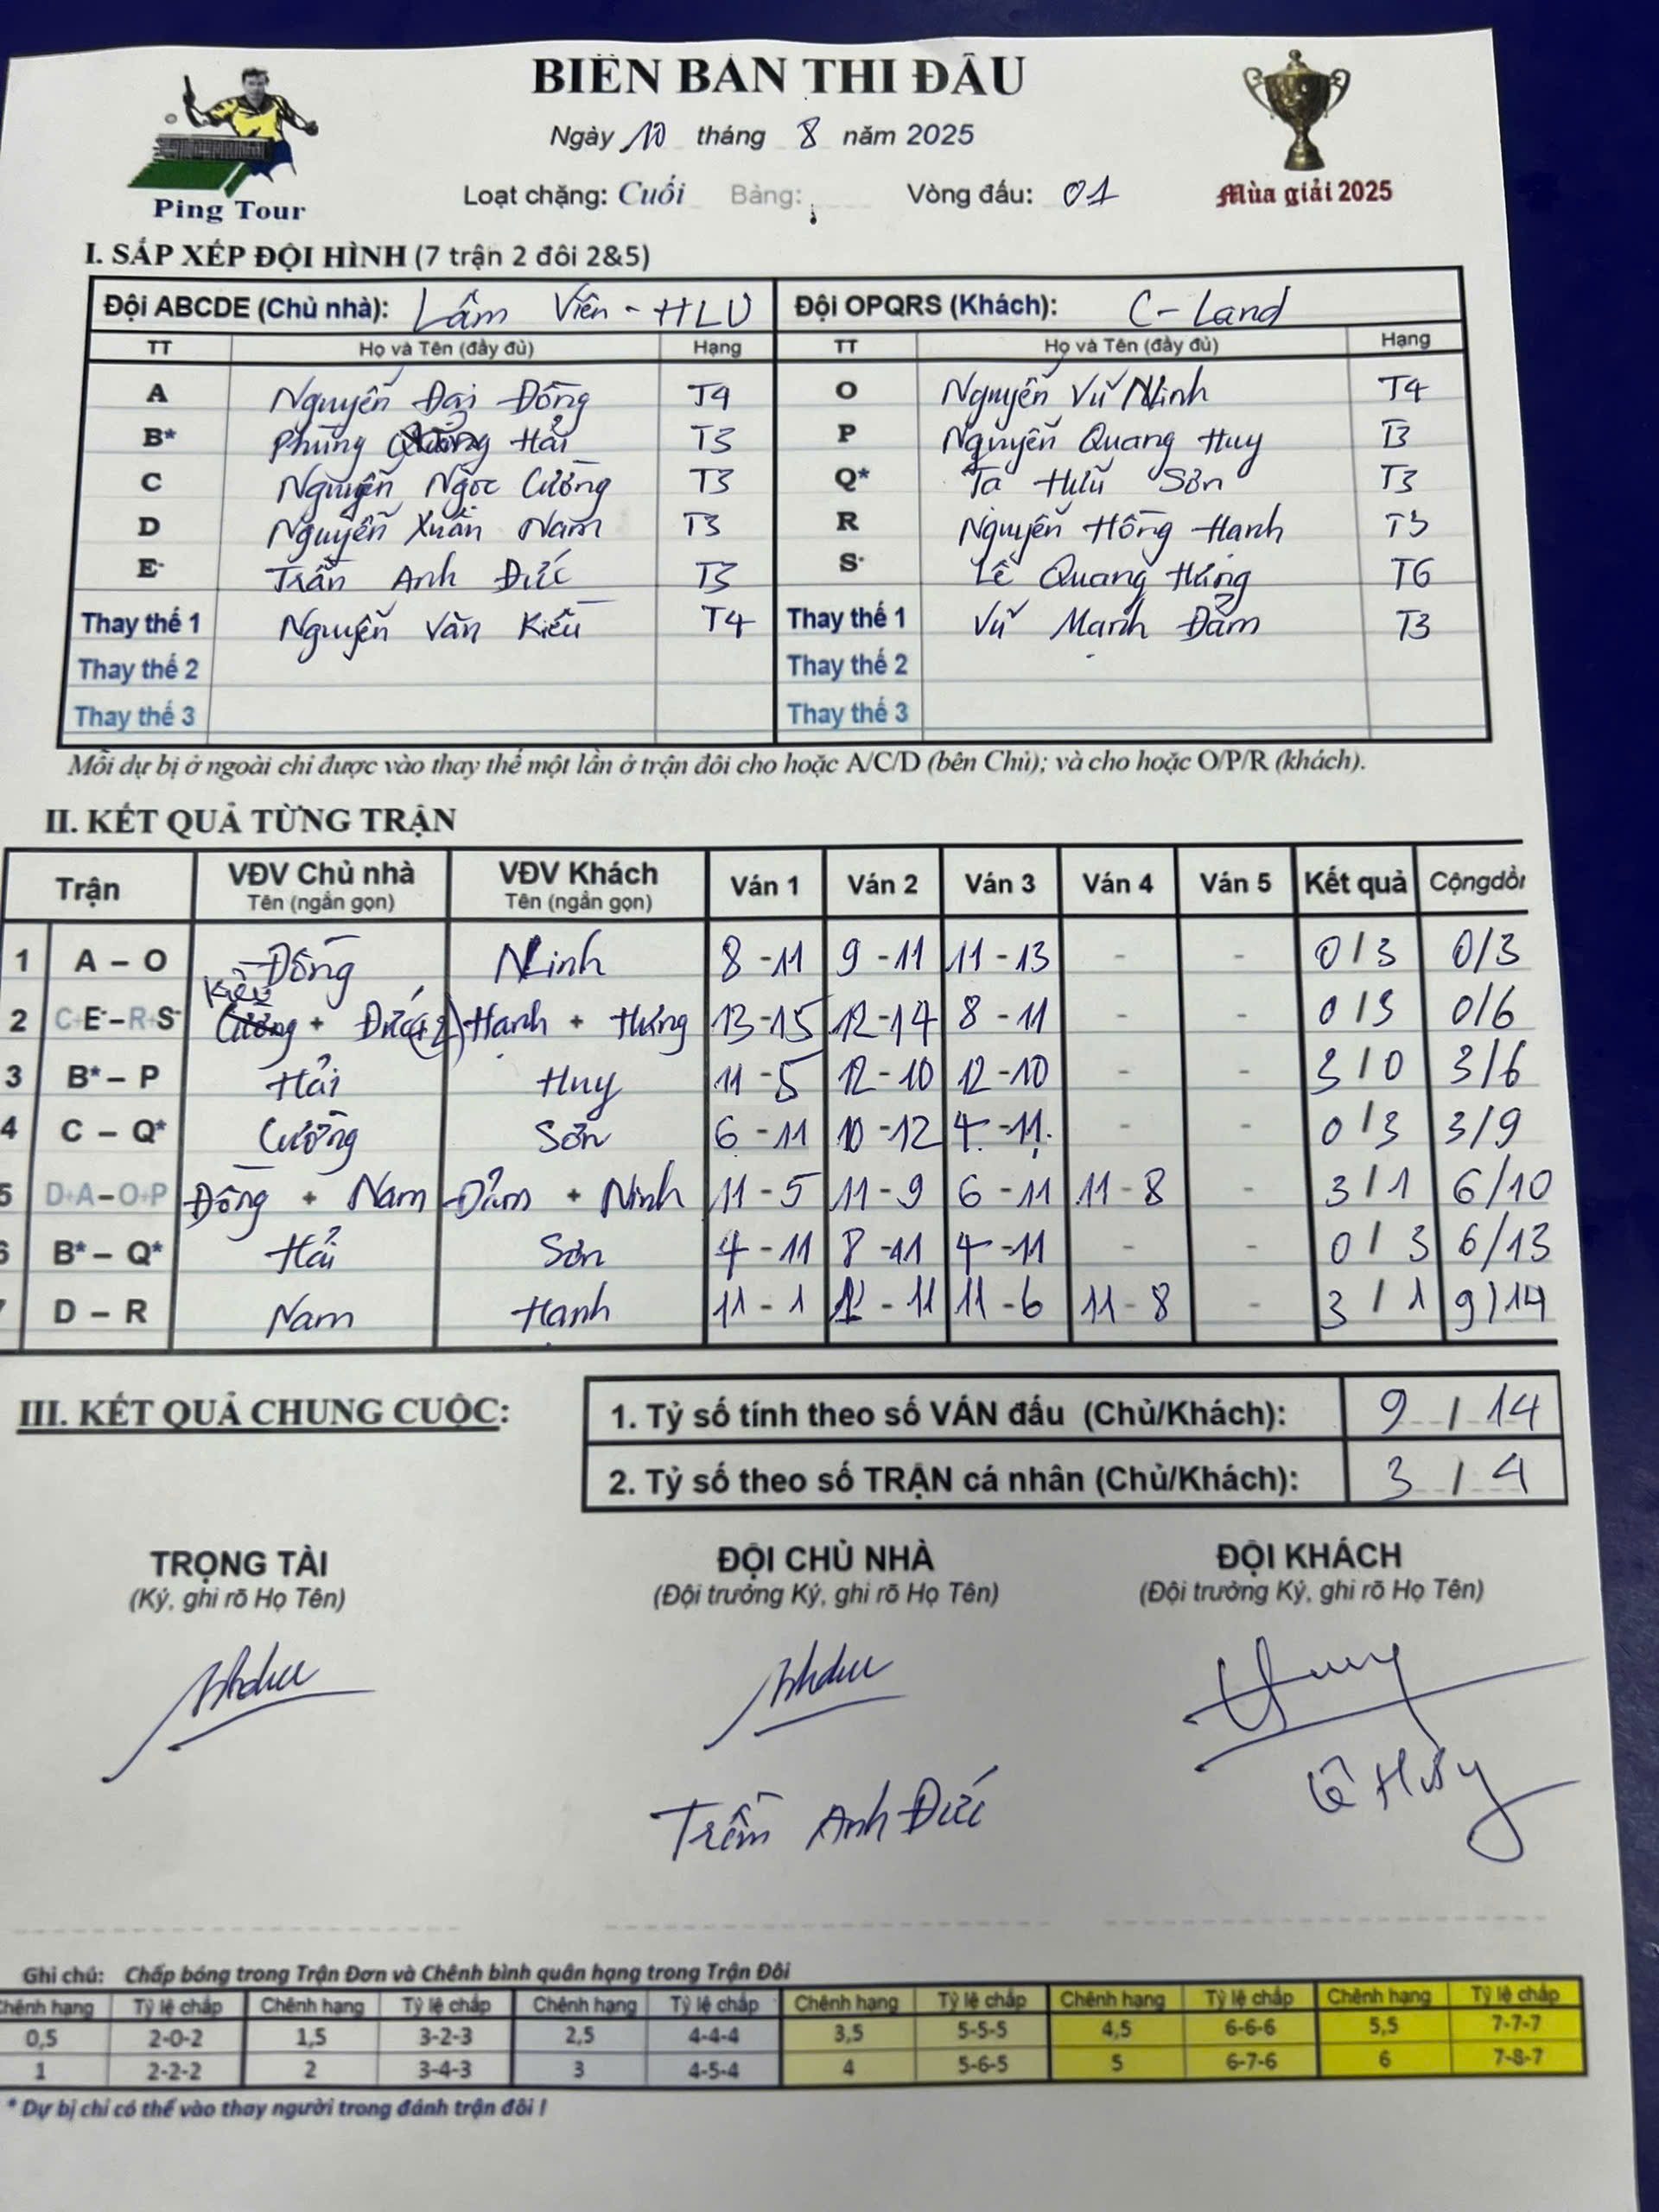 BIÊN BẢN THI ĐẤU
Ngày 10 tháng 8 năm 2025
Loạt chặng: Cuối Bảng: Vòng đấu: 01
Ping Tour
Mùa giải 2025
I. SẮP XẾP ĐỘI HÌNH (7 trận 2 đôi 2&5)
Đội ABCDE (Chủ nhà): Lâm Viên - HLU Đội OPQRS (Khách): C-Land
TT Họ và Tên (đầy đủ) Hạng TT Họ và Tên (đầy đủ) Hạng
A Nguyễn Đại Đồng T4 O Nguyễn Vũ Ninh T4
B* Phùng Hải T3 P Nguyễn Quang Huy T3
C Nguyễn Ngọc Cường T3 Q* Tạ Hữu Sơn T3
D Nguyễn Xuân Nam T3 R Nguyễn Hồng Hạnh T5
E- Trần Anh Đức T3 S- Lê Quang Hưng T6
Thay thế 1 Nguyễn Văn Kiều T4 Thay thế 1 Vũ Mạnh Đảm T3
Thay thế 2 Thay thế 2
Thay thế 3 Thay thế 3
Mỗi dự bị ở ngoài chỉ được vào thay thế một lần ở trận đôi cho hoặc A/C/D (bên Chủ); và cho hoặc O/P/R (khách).
II. KẾT QUẢ TỪNG TRẬN
Trận VĐV Chủ nhà VĐV Khách Ván 1 Ván 2 Ván 3 Ván 4 Ván 5 Kết quả Cộngdồn
Tên (ngắn gọn) Tên (ngắn gọn)
1 A – O Đồng Ninh 8 - 11 9 - 11 11 - 13 - - 0 / 3 0/3
Kiều
2 C+E-–R+S- Cường + Đức(+2) Hạnh + Hưng 13 - 15 12 - 14 8 - 11 - - 0 / 3 0/6
3 B* – P Hải Huy 11 - 5 12 - 10 12 - 10 - - 3 / 0 3/6
4 C – Q* Cường Sơn 6 - 11 10 - 12 4 - 11 - - 0 / 3 3/9
5 D+A–O+P Đồng + Nam Đảm + Ninh 11 - 5 11 - 9 6 - 11 11 - 8 - 3 / 1 6/10
6 B* – Q* Hải Sơn 4 - 11 8 - 11 4 - 11 - - 0 / 3 6/13
D – R Nam Hạnh 11 - 1 - 11 11 - 6 11 - 8 - 3 / 1 9/14
III. KẾT QUẢ CHUNG CUỘC:
1. Tỷ số tính theo số VÁN đấu (Chủ/Khách): 9 / 14
2. Tỷ số theo số TRẬN cá nhân (Chủ/Khách): 3 / 4
TRỌNG TÀI ĐỘI CHỦ NHÀ ĐỘI KHÁCH
(Ký, ghi rõ Họ Tên) (Đội trưởng Ký, ghi rõ Họ Tên) (Đội trưởng Ký, ghi rõ Họ Tên)
Trần Anh Đức
Ghi chú: Chấp bóng trong Trận Đơn và Chênh bình quân hạng trong Trận Đôi
Chênh hạng Tỷ lệ chấp Chênh hạng Tỷ lệ chấp Chênh hạng Tỷ lệ chấp Chênh hạng Tỷ lệ chấp Chênh hạng Tỷ lệ chấp Chênh hạng Tỷ lệ chấp
0,5 2-0-2 1,5 3-2-3 2,5 4-4-4 3,5 5-5-5 4,5 6-6-6 5,5 7-7-7
1 2-2-2 2 3-4-3 3 4-5-4 4 5-6-5 5 6-7-6 6 7-8-7
* Dự bị chỉ có thể vào thay người trong đánh trận đôi !